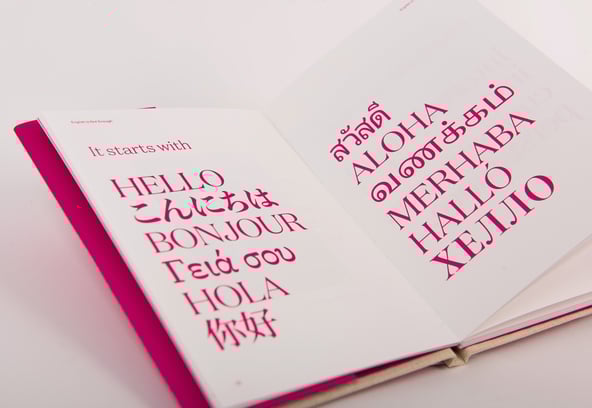 English is Not Enough
It starts with
HELLO
こんにちは
BONJOUR
Γειά σου
HOLA
你好
สวัสดี
ALOHA
வணக்கம்
MERHABA
HALLÓ
ХЕЛЛО